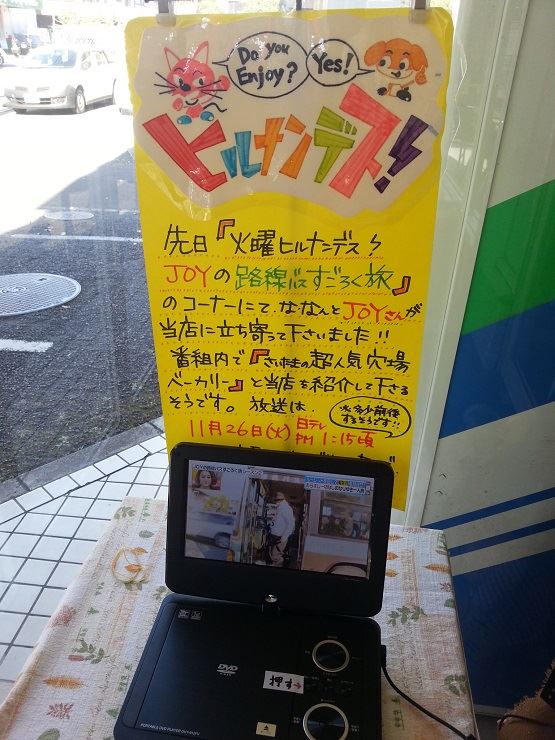 Do you Enjoy?
Yes!
ヒルナンデス!
先日『火曜ヒルナンデス!
JOYの路線バスすごろく旅』
のコーナーにて、ななんとJOYさんが
当店に立ち寄って下さいました!!
番組内で『さいたまの超人気穴場
ベーカリー』と当店を紹介して下さる
そうです。放送は、
11月26日(火)日テレ
PM 1:15頃
※多少前後
するそうです!!
JOYの路線バスすごろく旅
DVD
押す→
PORTABLE DVD PLAYER